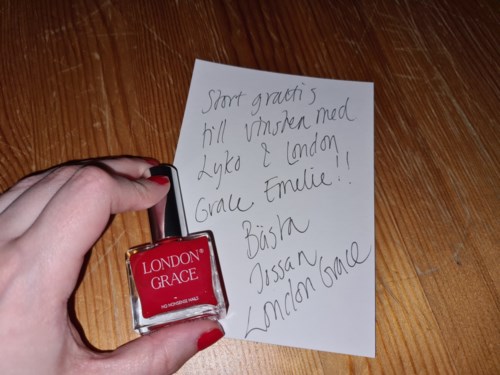 Stort grattis
till vinsten med
Lyko & London
Grace Emelie!!
Bästa
Jossan
London Grace
LONDON®
GRACE
NO NONSENSE NAILS